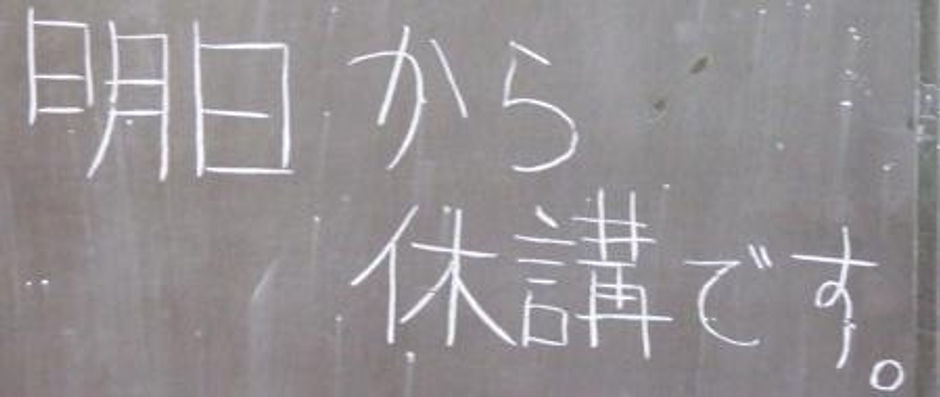 明日から
休講です。